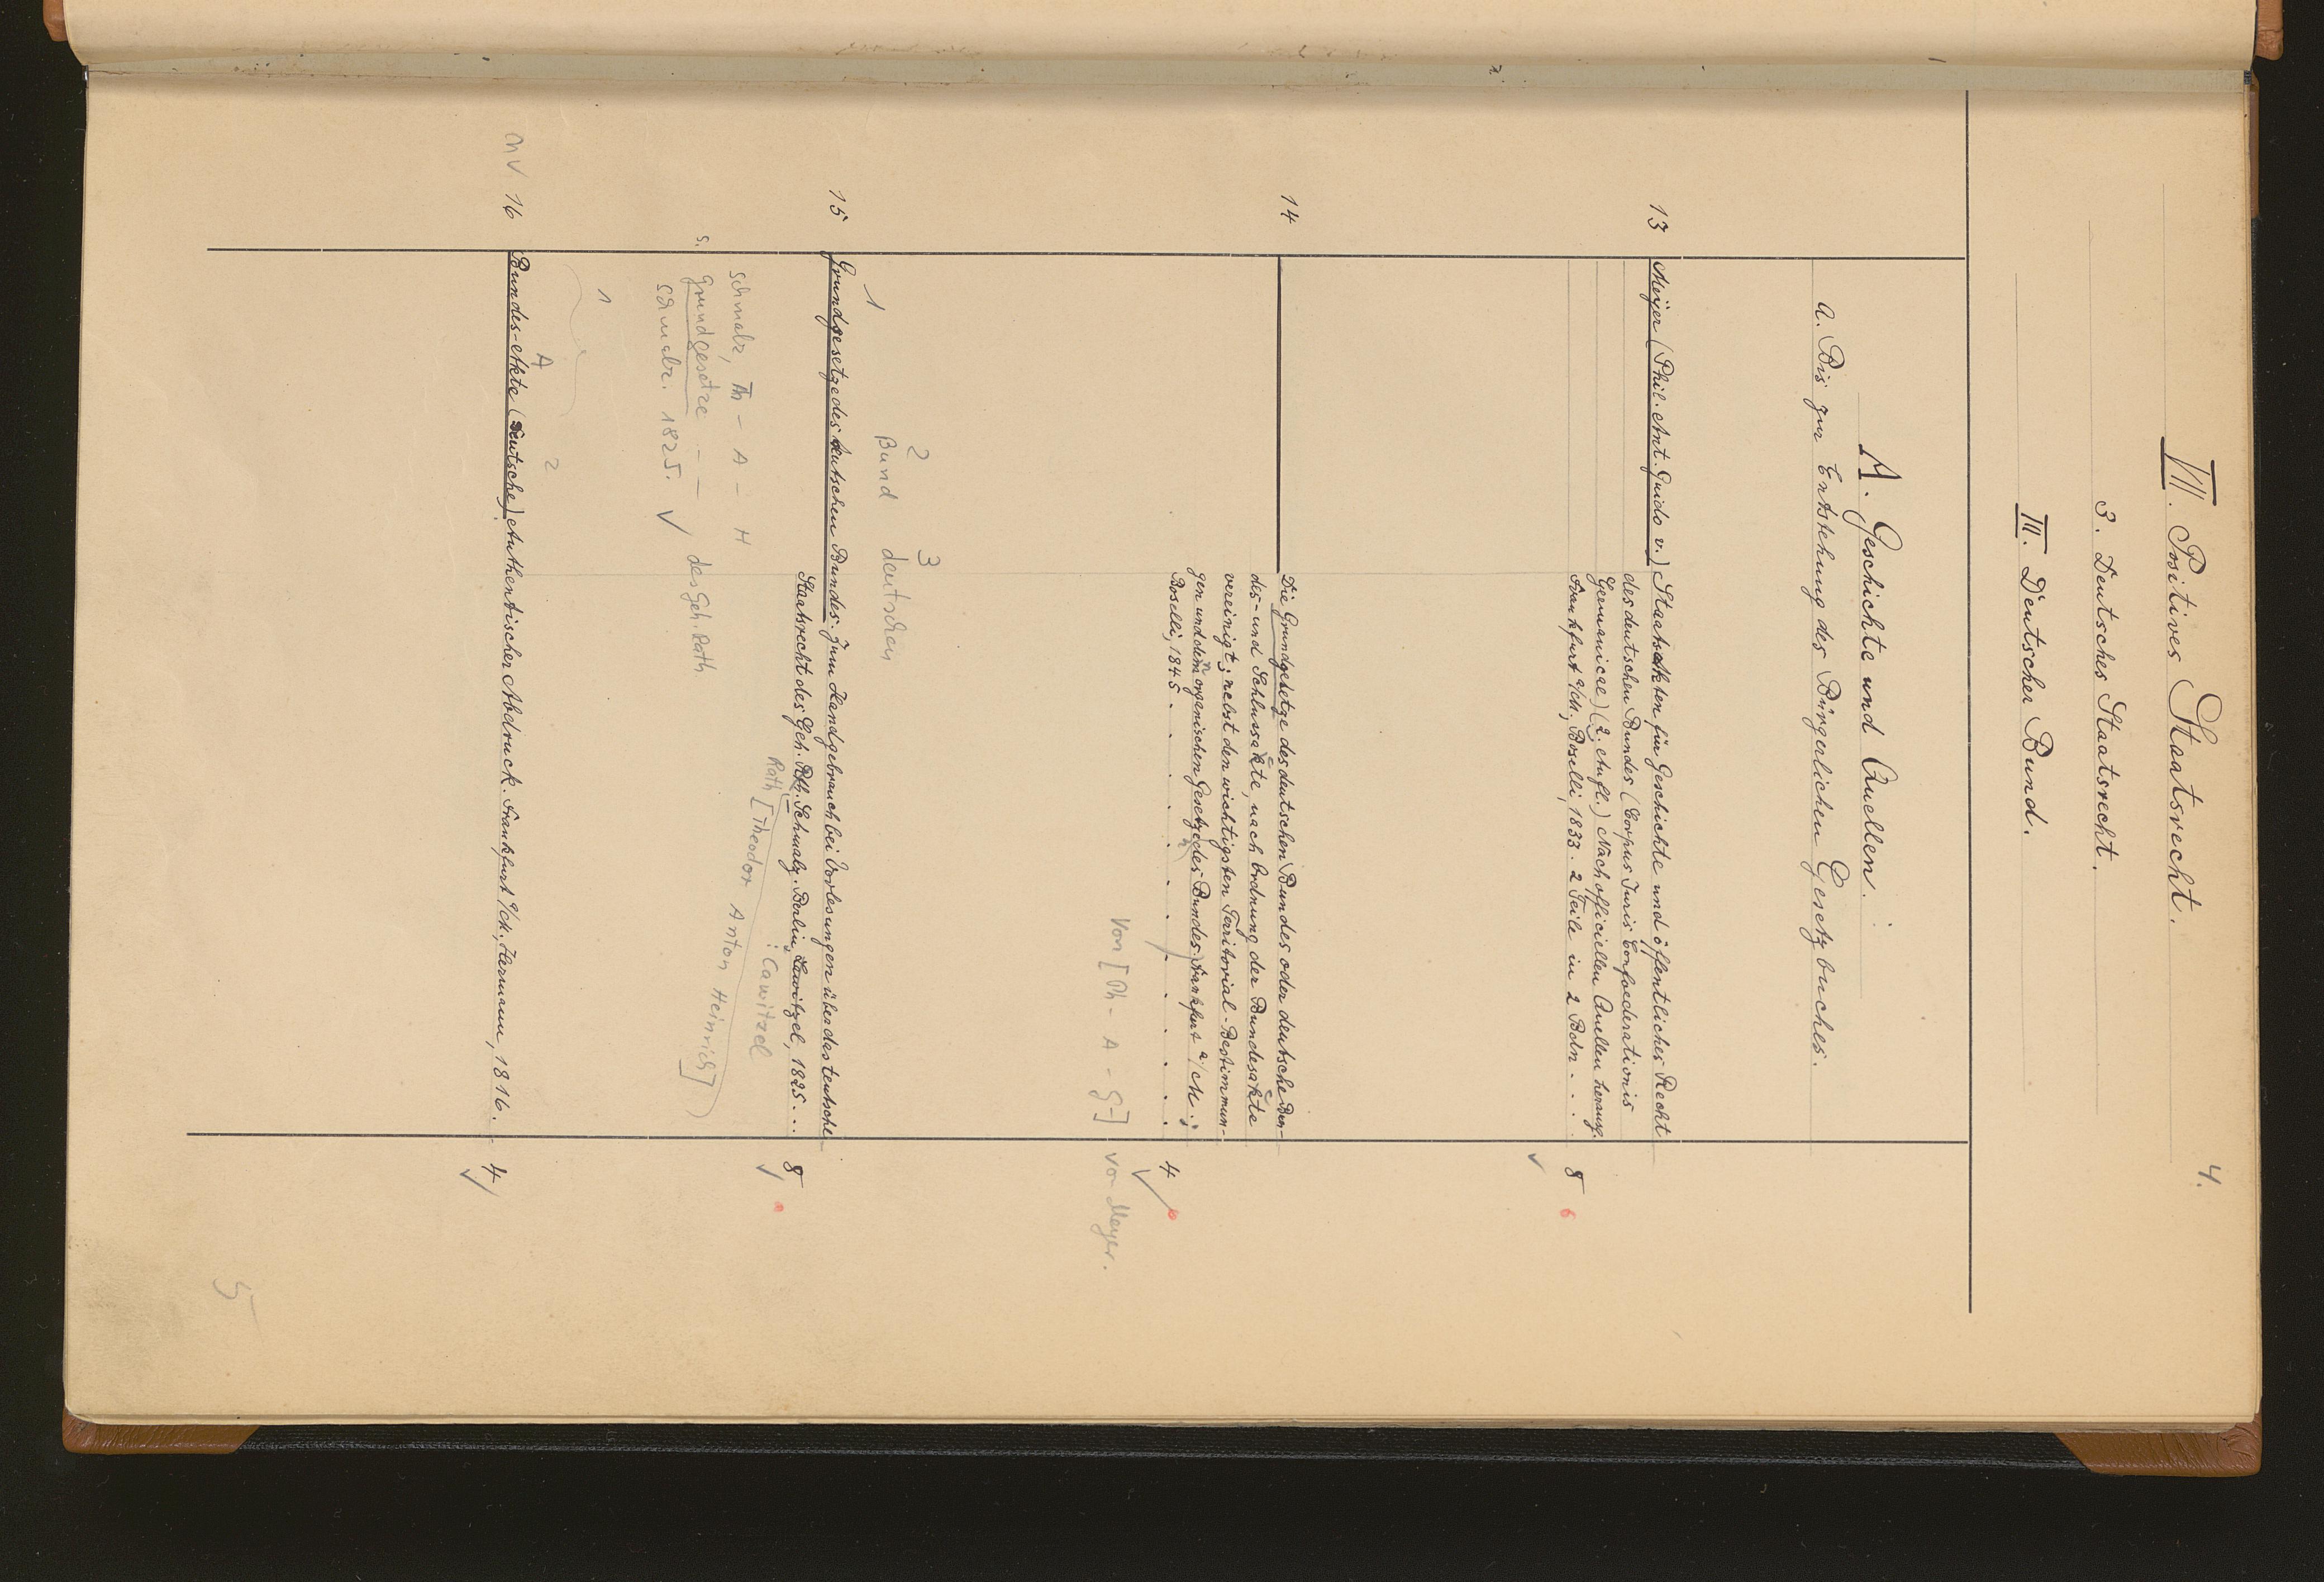 4.
VII. Positives Staatsrecht.
3. Deutsches Staatsrecht.
III. Deutscher Bund.
A. Geschichte und Quellen.
a. Bis zur Entstehung des Bürgerlichen Gesetzbuches.
13 Meyer (Phil. Ant. Guido v.) Staatsakten für Geschichte und öffentliches Recht
des deutschen Bundes (Corpus Juris Confoederationis
Germanicae) (2. Aufl.) Nach officiellen Quellen herausg.
Frankfurt a/M., Boselli, 1833. 2 Teile in 2 Bdn. . . 8
14 Die Grundgesetze des deutschen Bundes oder deutsche Bun-
des- und Schlussakte, nach Ordnung der Bundesakte
vereinigt; nebst den wichtigsten Territorial-Bestimmun-
gen und den organischen Gesetzen des Bundes Frankfurt a/M.;
Boselli, 1845. . . . . . . . . . . . 4
von [Ph - A - G] von Meyer.
1 2 3
Bund deutschen
15 Grundgesetze des deutschen Bundes. Zum Handgebrauch bei Vorlesungen über das teutsche
Staatsrecht des Geh. Rth. Schmalz. Berlin, Lawitzel, 1825. . . 8
Rath [Theodor Anton Heinrich]
: Cawitzel
Schmalz, Th - A - H
s. Grundgesetze - - des Geh. Rath
Schmalz. 1825. ✓
1 A 2
nv 16 Bundes-Akte (Deutsche) Authentischer Abdruck. Frankfurt a/M., Hermann, 1816. 4
5